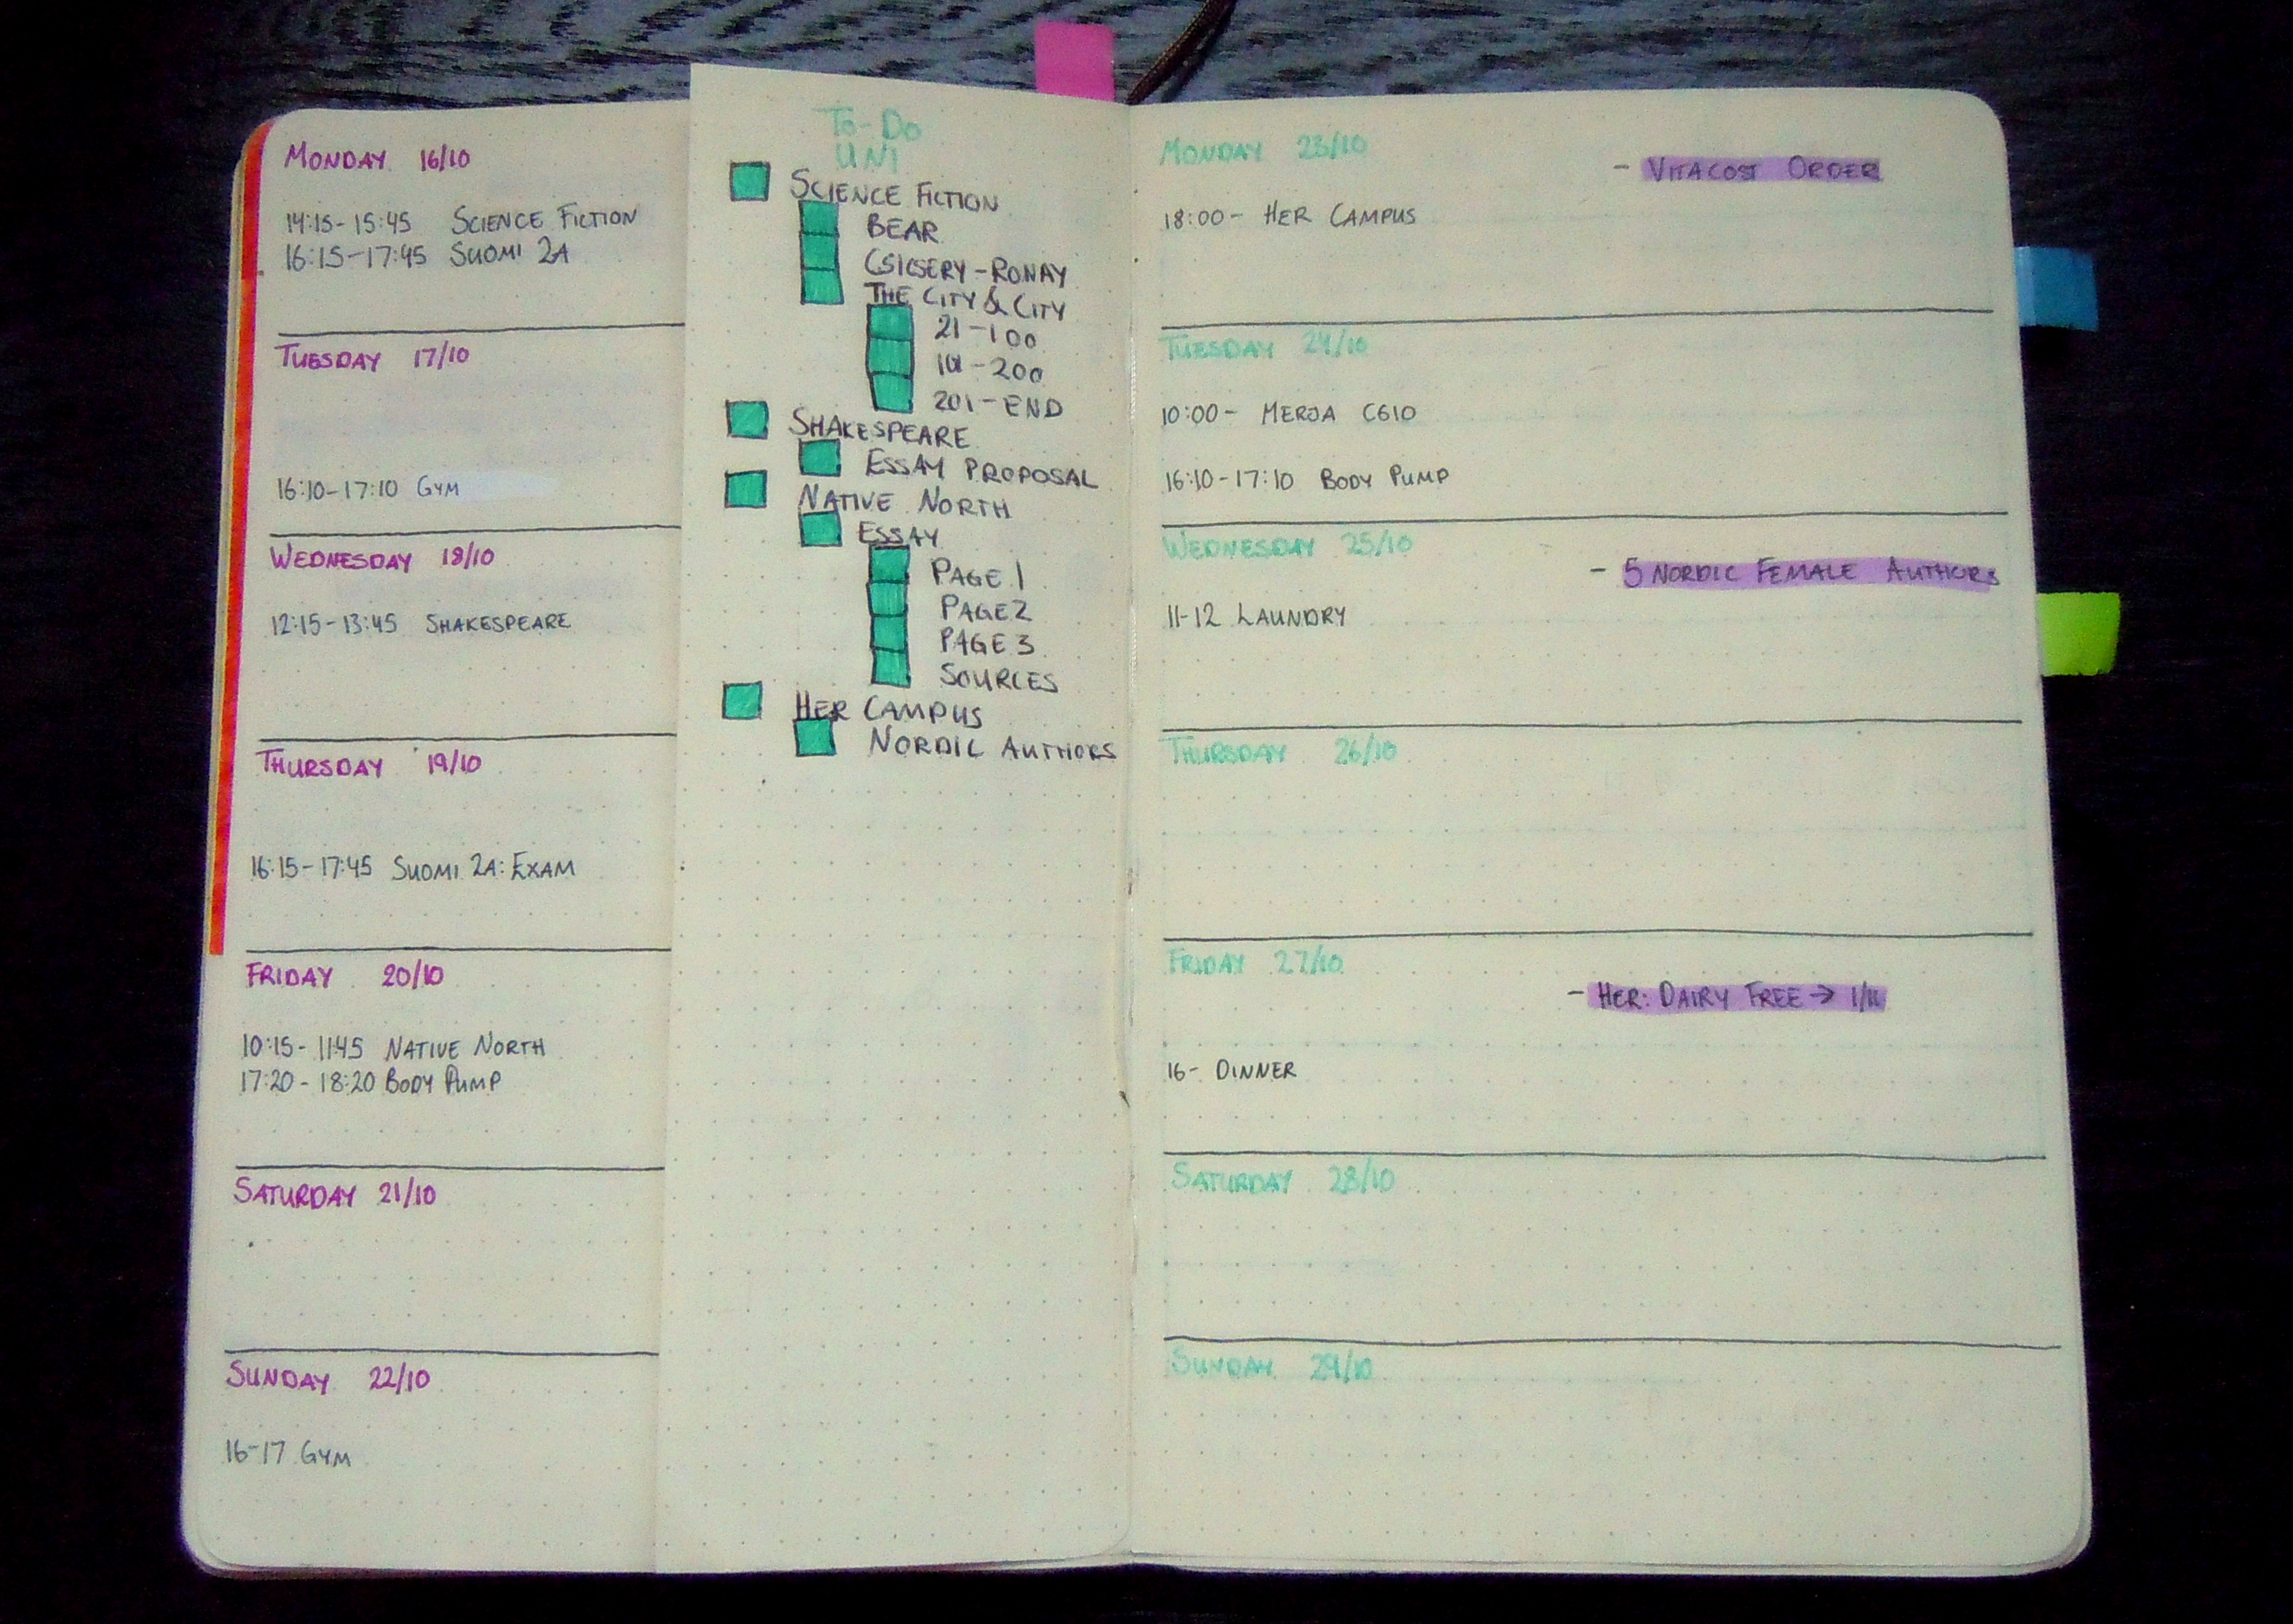 MONDAY 16/10
14:15-15:45 SCIENCE FICTION
16:15-17:45 SUOMI 2A
TUESDAY 17/10
16:10-17:10 GYM
WEDNESDAY 18/10
12:15-13:45 SHAKESPEARE
THURSDAY 19/10
16:15-17:45 SUOMI 2A: EXAM
FRIDAY 20/10
10:15-11:45 NATIVE NORTH
17:20-18:20 BODY PUMP
SATURDAY 21/10
SUNDAY 22/10
16-17 GYM
TO-DO
UNI
SCIENCE FICTION
BEAR
CSICSERY-RONAY
THE CITY & CITY
21-100
101-200
201-END
SHAKESPEARE
ESSAY PROPOSAL
NATIVE NORTH
ESSAY
PAGE 1
PAGE 2
PAGE 3
SOURCES
HER CAMPUS
NORDIC AUTHORS
MONDAY 23/10
- VITACOST ORDER
18:00- HER CAMPUS
TUESDAY 24/10
10:00- MERJA C610
16:10-17:10 BODY PUMP
WEDNESDAY 25/10
- 5 NORDIC FEMALE AUTHORS
11-12 LAUNDRY
THURSDAY 26/10
FRIDAY 27/10
- HER: DAIRY FREE → 1/11
16- DINNER
SATURDAY 28/10
SUNDAY 29/10